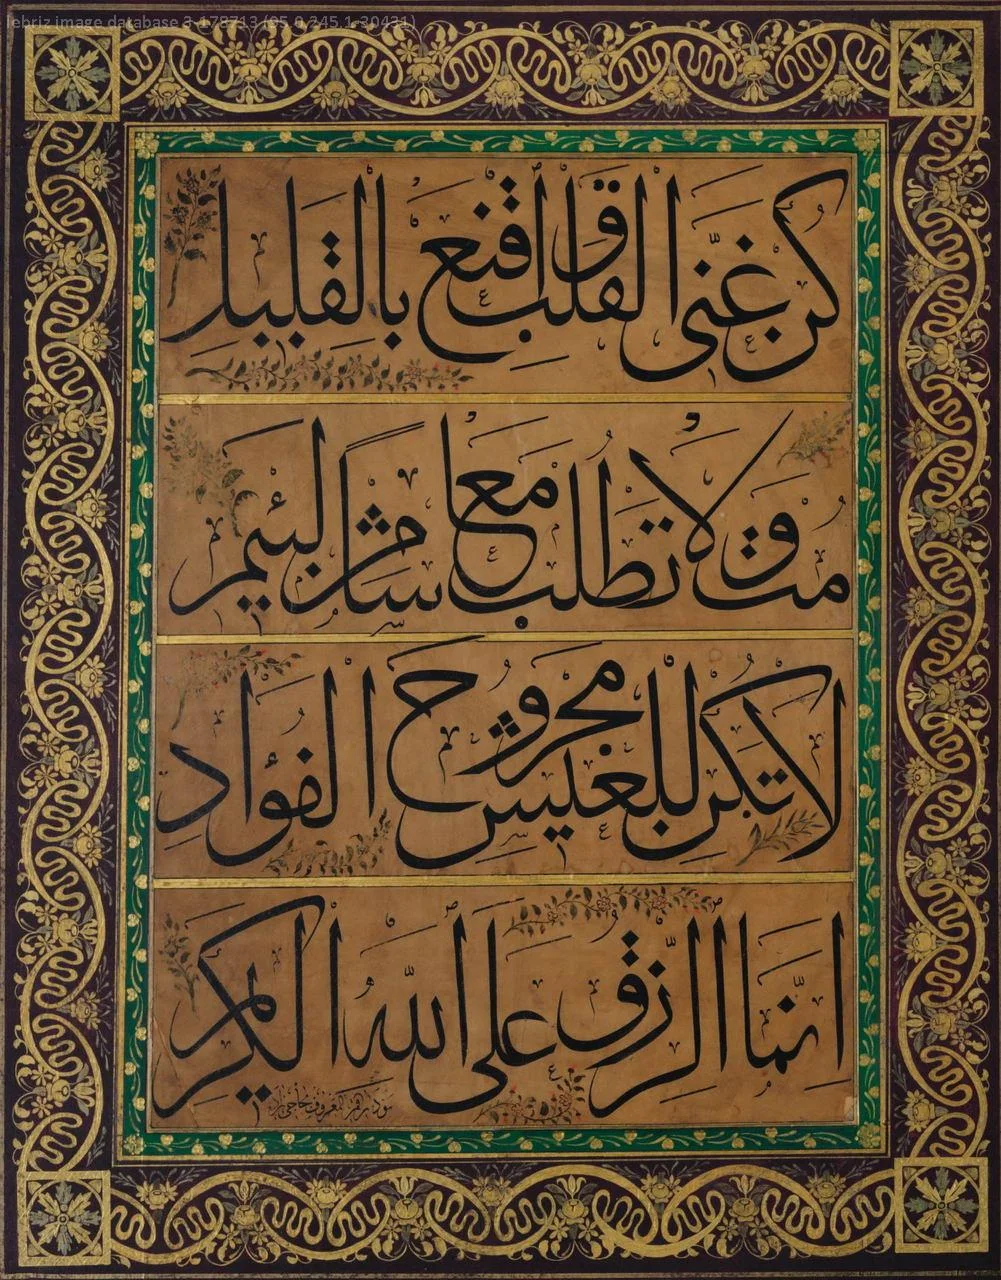 lebriz image database 3-178713 (95.0.245.1-30431)
كن غنى القلب واقنع بالقليل
مت ولا تطلب معاشا من لئيم
لا تكن للعيش مجروح الفؤاد
انما الرزق على الله الكريم